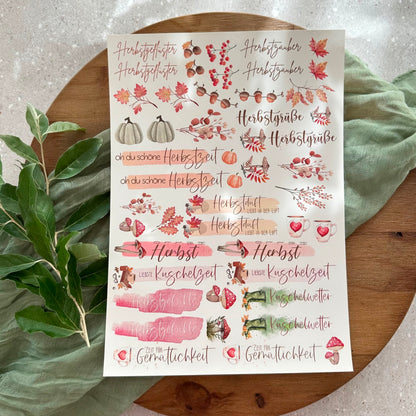 Herbstgeflüster Herbstzauber
Herbstgeflüster Herbstzauber
Herbstgrüße
Herbstgrüße
oh du schöne Herbstzeit
oh du schöne Herbstzeit
Herbstduft
LIEGT IN DER LUFT
Herbstduft
LIEGT IN DER LUFT
Herbst Herbst
LIEBSTE Kuschelzeit LIEBSTE Kuschelzeit
Kuschelwetter
Kuschelwetter
ZEIT FÜR Gemütlichkeit ZEIT FÜR Gemütlichkeit